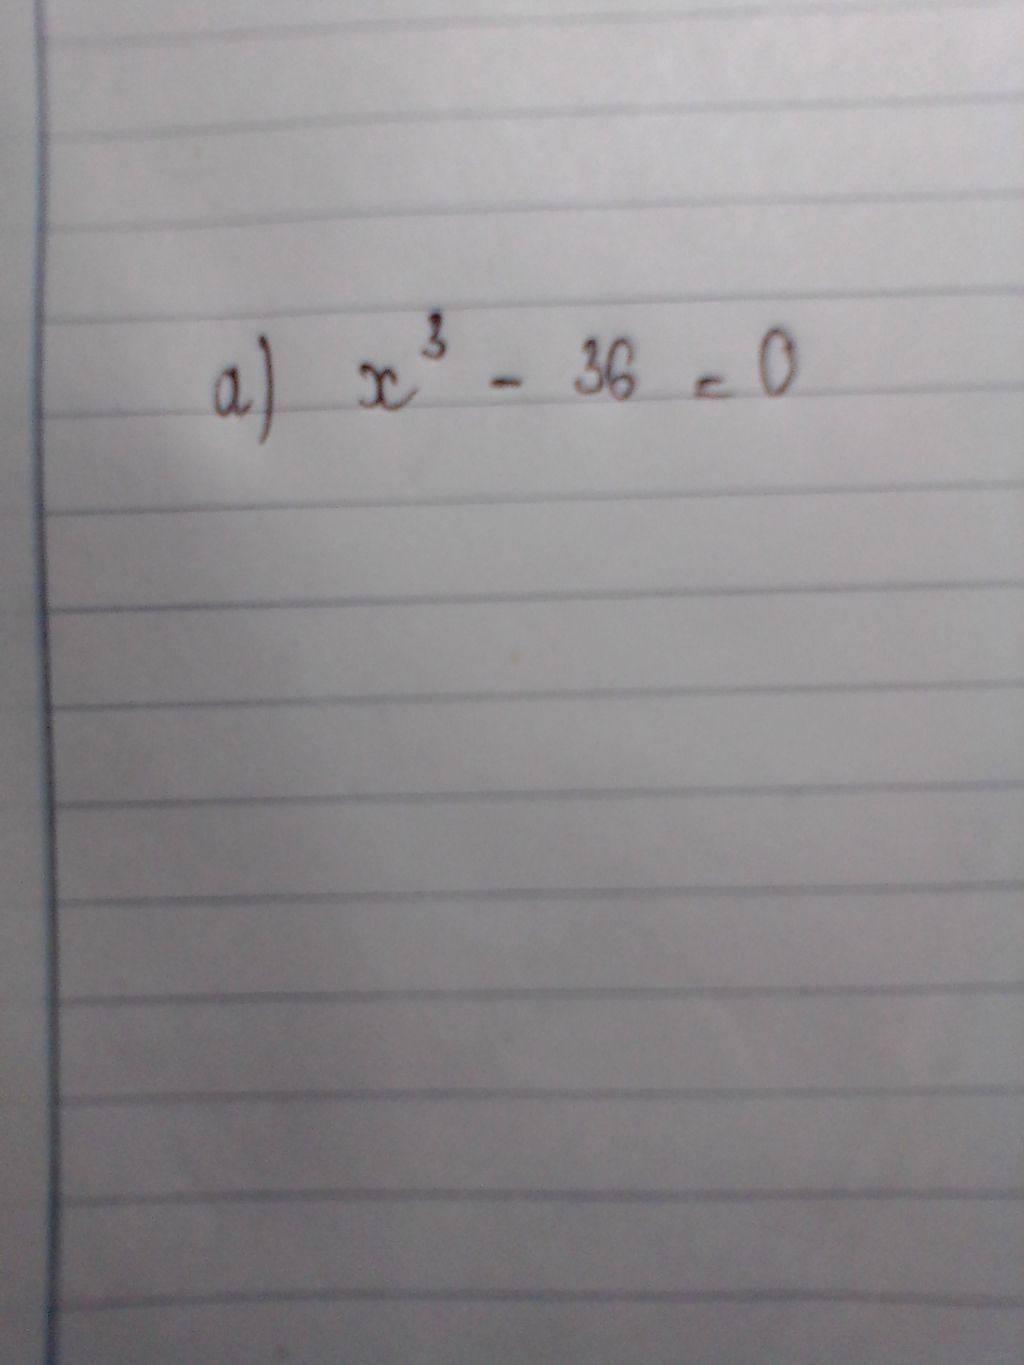 a) x³ - 36 = 0